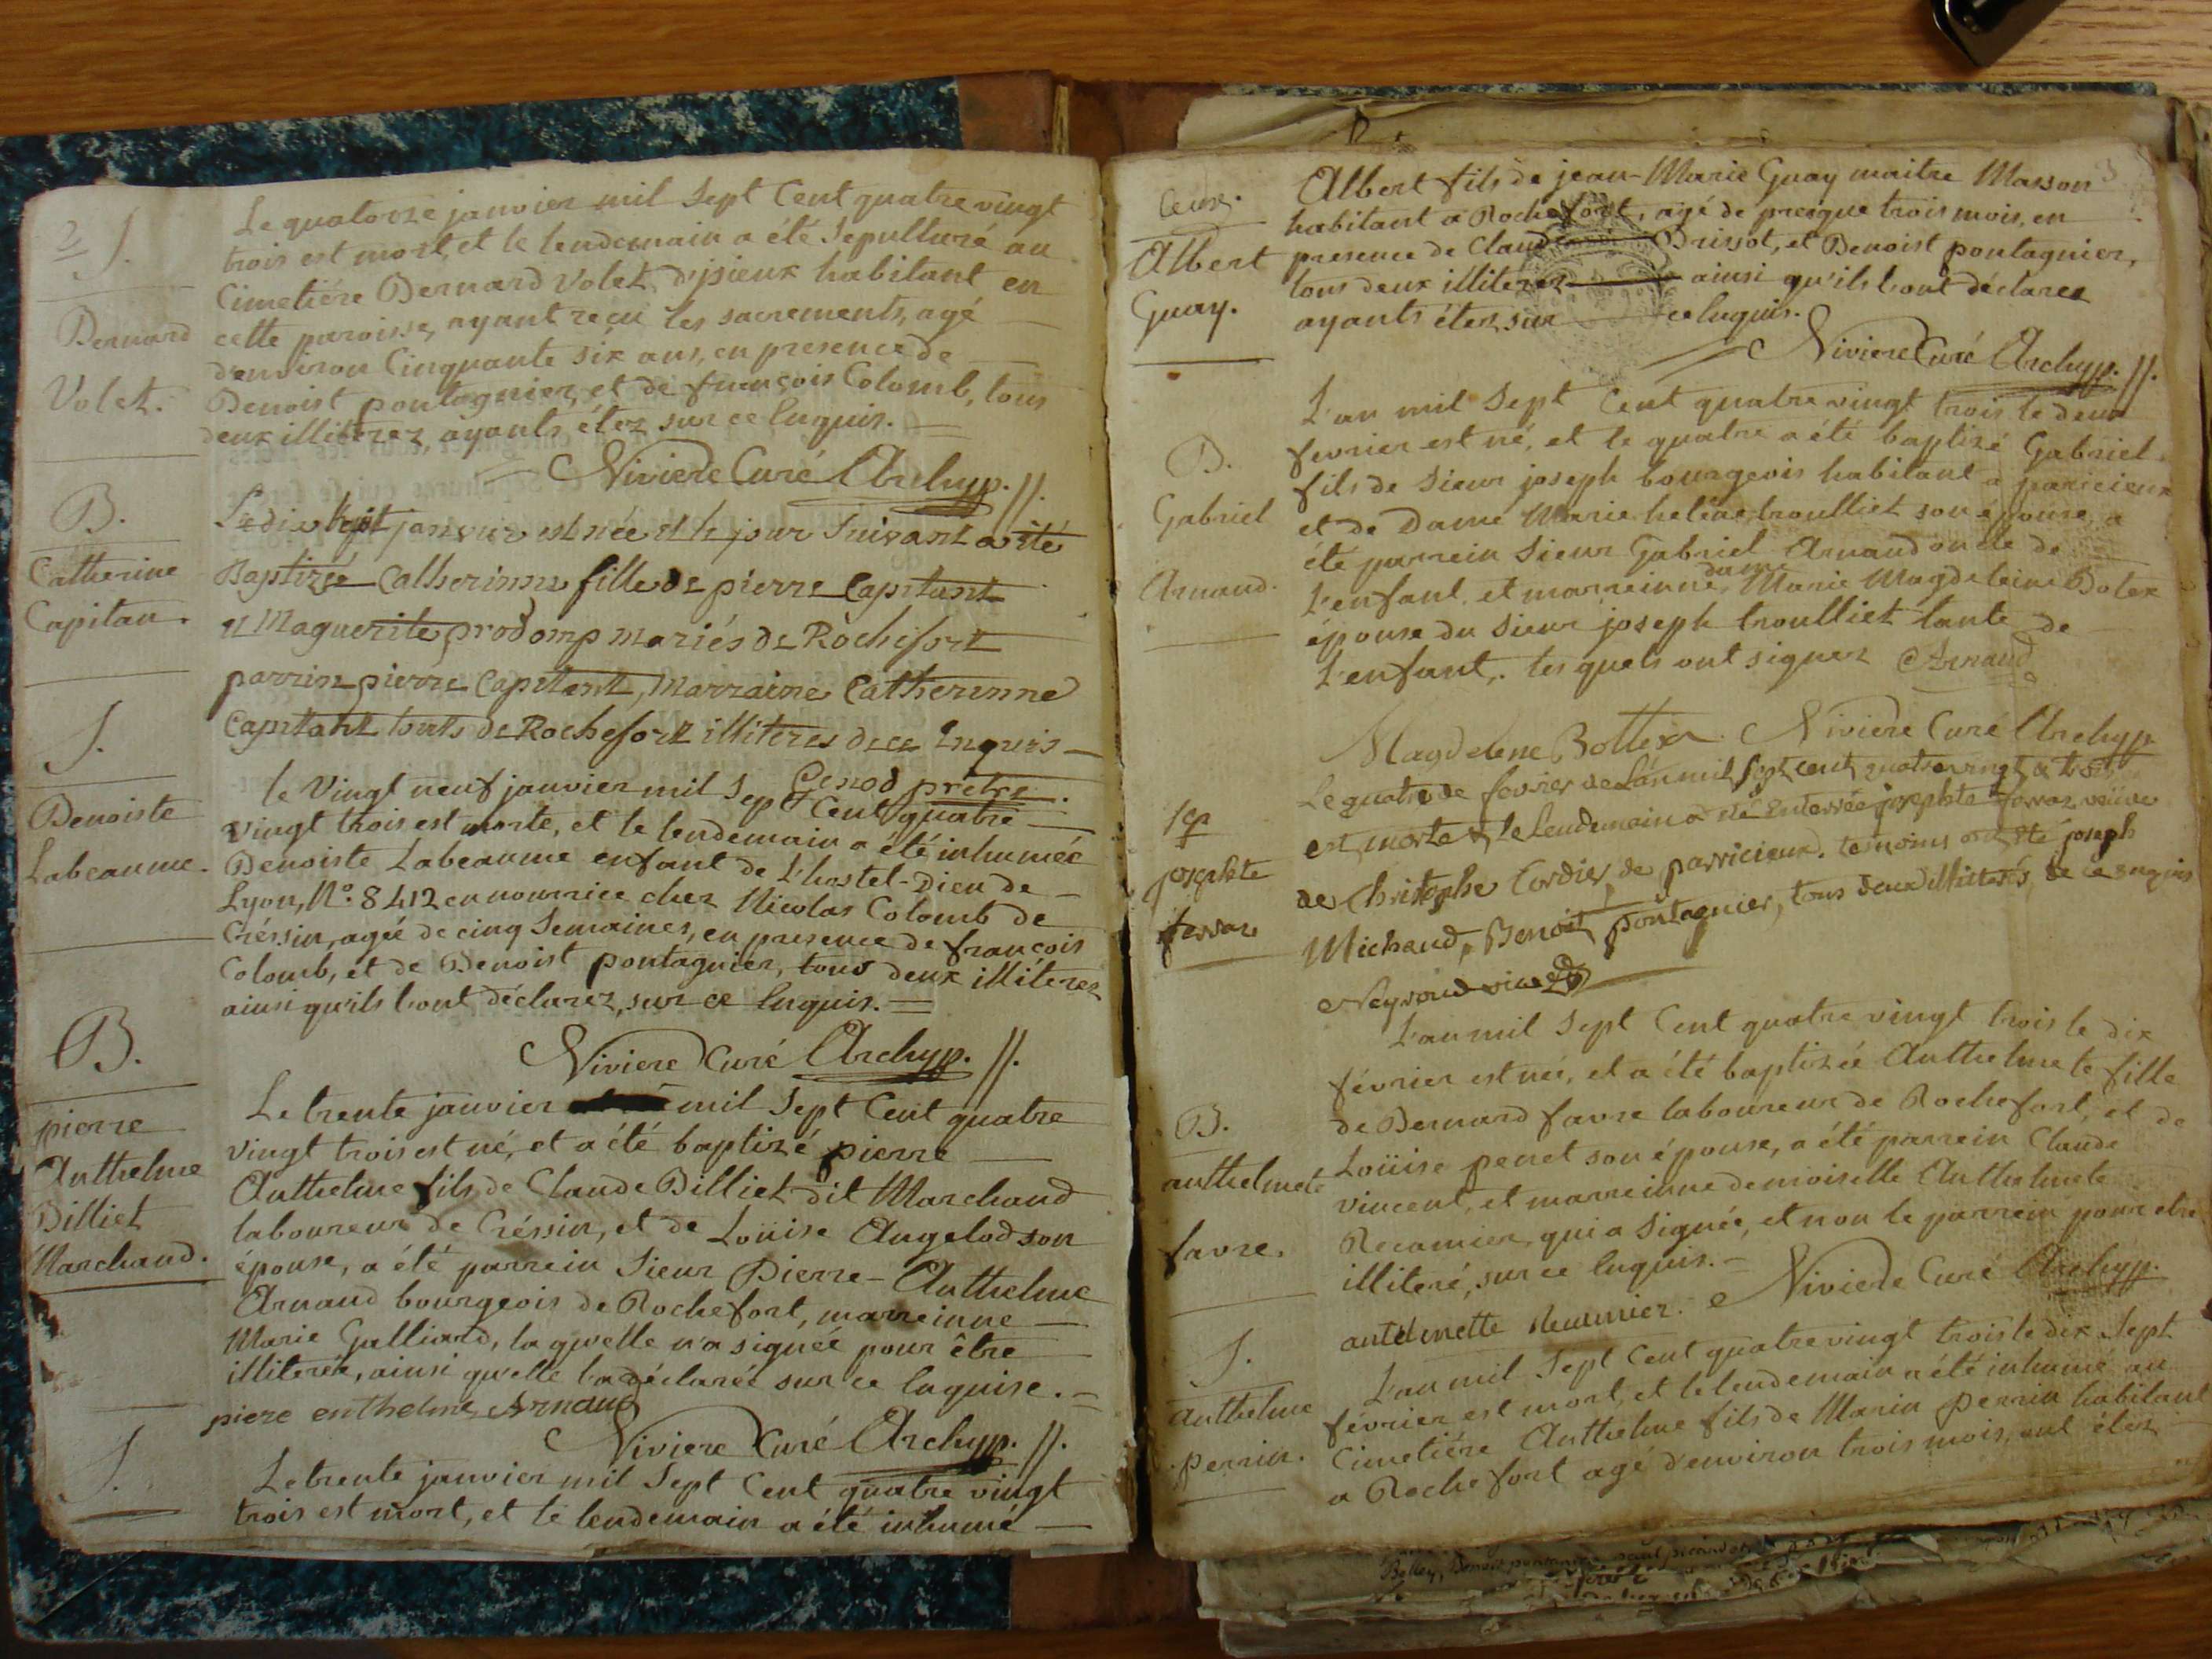 2
S.
Bernard
Volet.
Le quatorze janvier mil Sept Cent quatre vingt
trois est mort, et le lendemain a été Sepulturé au
Cimetiére Bernard Volet d'ysieux habitant en
cette paroisse, ayant reçu les sacrements, agé
d'environ Cinquante six ans, en presence de
Benoist pontagnier, et de françois Colomb, tous
deux illiterez, ayants étez sur ce Enquis.
Niviere Curé Archyp.
B.
Catherine
Capitan.
Le dix sept janvier est née et le jour Suivant a été
Baptizée Catherinne fille de pierre Capitant
et Maguerite prodomp mariés de Rochefort
parrin pierre Capitant, Marraine Catherinne
Capitant touts de Rochefort illiteres de ce Enquis
Genod prêtre.
S.
Benoiste
Labeaume.
le Vingt neuf janvier mil Sept Cent quatre
vingt trois est morte, et le lendemain a été inhumée
Benoiste Labeaume enfant de L'hostel-Dieu de
Lyon, N.º 8412 en nourrice chez Nicolas Colomb de
Créssin, agée de cinq Semaines, en presence de françois
Colomb, et de Benoist pontagnier, tous deux illiterez
ainsi qu'ils l'ont déclarez, sur ce Enquis.
Niviere Curé Archyp.
B.
pierre
Anthelme
Billiet
Marchand.
Le trente janvier mil Sept Cent quatre
vingt trois est né, et a été baptizé pierre
Anthelme fils de Claude Billiet dit Marchand
laboureur de Créssin, et de Loüise Angelod son
épouse, a été parrein Sieur Pierre-Anthelme
Arnaud bourgeois de Rochefort, marreinne
Marie Galliard, la qu'elle n'a signée pour être
illiterée, ainsi qu'elle l'a déclarée sur ce Enquise.
piere enthelme Arnaud
Niviere Curé Archyp.
S.
Le trente janvier mil Sept Cent quatre vingt
trois est mort, et le lendemain a été inhumé
3
Albert
Guay.
Albert fils de jean-Marie Guay maitre Masson
habitant a Rochefort, agé de presque trois mois, en
presence de Claude Brissot, et Benoist pontagnier,
tous deux illiterez ainsi qu'ils l'ont déclarez
ayants étez sur ce Enquis.
Niviere Curé Archyp.
B.
Gabriel
Arnaud.
L'an mil Sept Cent quatre vingt trois le deux
fevrier est né, et le quatre a été baptizé Gabriel
fils de Sieur joseph bourgeois habitant a paricieux
et de Dame Marie helene troulliet son épouse, a
été parrein Sieur Gabriel Arnaud oncle de
L'enfant et marreinne dame Marie Magdeleine Botex
épouse du Sieur joseph troulliet tante de
L'enfant, les quels ont signez Arnaud
Magdelene Bottex Niviere Curé Archyp
Sep
josephte
ferraz
Le quatre de fevrier de L'an mil sept cent quatre vingt & trois
est morte & le Lendemain a été Enterrée josephte ferraz veüve
de Christophe Cordier de parricieux. temoins ont été joseph
Michaud, Benoit pontagnier, tous deux illitterés, de ce enquis
Neyroud
B.
anthelmete
favre.
L'an mil Sept Cent quatre vingt trois le dix
février est née, et a été baptizée Anthelmete fille
de Bernard favre laboureur de Rochefort, et de
Loüise penet son épouse, a été parrein Claude
vincent, et marreinne demoiselle Anthelmete
Recamier, qui a Signée, et non le parrein pour etre
illiteré, sur ce Enquis.
antelmette Recamier. Niviere Curé Archyp.
S.
Anthelme
perrin.
L'an mil Sept Cent quatre vingt trois le dix Sept
février est mort, et le lendemain a été inhumé au
Cimetiére Anthelme fils de Marin perrin habitant
a Rochefort agé d'environ trois mois, ont étez